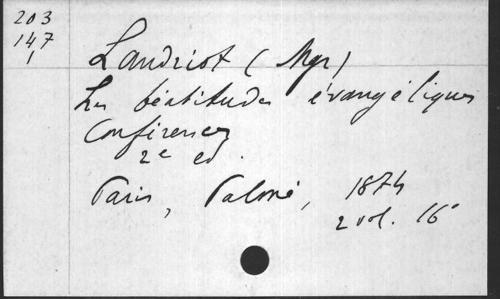 203
147
1
Landriot (Mgr)
Les béatitudes évangéliques
Conférences
2e ed.
Paris, Palmé, 1874
2 vol. 16°